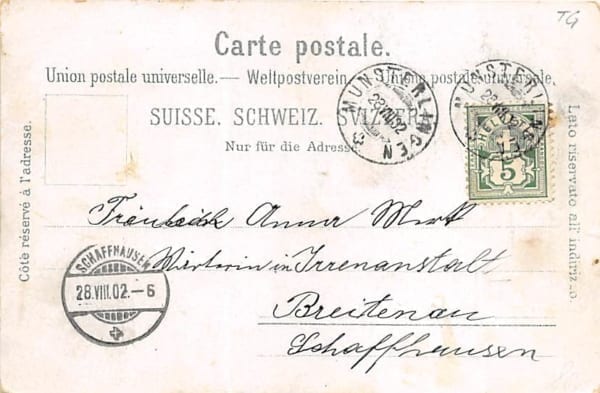 TG
Carte postale.
Union postale universelle. — Weltpostverein. — Unione postale universale.
SUISSE. SCHWEIZ. SVIZZERA.
Nur für die Adresse.
Côté réservé à l'adresse.
Lato riservato all' indirizzo.
MÜNSTERLINGEN
28.VIII.02
5
Anna
Wärterin in Irrenanstalt
Breitenau
Schaffhausen
SCHAFFHAUSEN
28.VIII.02.-6